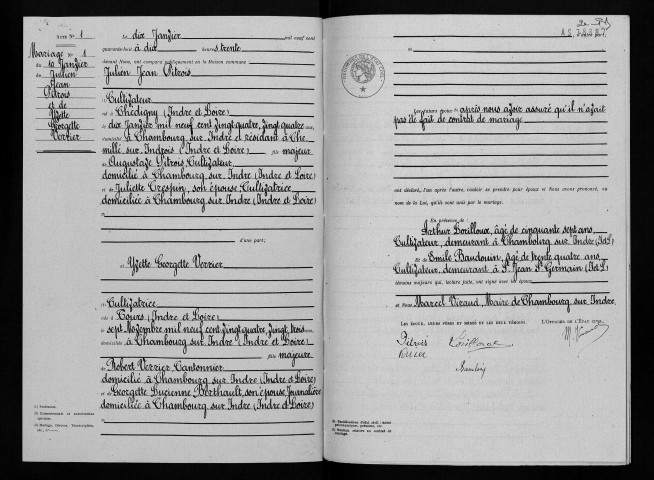 Acte N° 1
Mariage N° 1
du 10 Janvier
Julien
Jean
Pitrois
et de
Yvette
Georgette
Verrier
Le dix Janvier mil neuf cent
quarante-huit à dix heures trente
devant Nous, ont comparu publiquement en la Maison commune
Julien Jean Pitrois
Cultivateur
né à Chédigny (Indre et Loire)
le dix Janvier mil neuf cent vingt quatre, vingt quatre ans,
domicilié à Chambourg sur Indre et résidant à Che
millé sur Indrois (Indre et Loire) fils majeur
de Auguste Pitrois Cultivateur
domicilié à Chambourg sur Indre (Indre et Loire)
et de Juliette Crespin, son épouse, Cultivatrice,
domiciliée à Chambourg sur Indre (Indre et Loire)
d'une part;
et Yvette Georgette Verrier
Cultivatrice
née à Tours (Indre et Loire)
le sept Novembre mil neuf cent vingt quatre, vingt trois ans,
domiciliée à Chambourg sur Indre (Indre et Loire)
fille majeure
de Robert Verrier Cantonnier
domicilié à Chambourg sur Indre (Indre et Loire)
et de Georgette Lucienne Berthault, son épouse, Journalière
domiciliée à Chambourg sur Indre (Indre et Loire)
(1) Profession.
d'autre part;
Les futurs époux après nous avoir assuré qu'il n'avait
pas été fait de contrat de mariage
ont déclaré, l'un après l'autre, vouloir se prendre pour époux et Nous avons prononcé, au
nom de la Loi, qu'ils sont unis par le mariage.
En présence de
Arthur Lorilloux, âgé de cinquante sept ans
Cultivateur, demeurant à Chambourg sur Indre (I et L)
Et de Emile Baudouin, âgé de trente quatre ans,
Cultivateur, demeurant à St Jean St Germain (I et L)
témoins majeurs qui, lecture faite, ont signé avec les époux
et Nous, Marcel Viraud, Maire de Chambourg sur Indre.
Les époux, leurs pères et mères et les deux témoins.
L'Officier de l'État civil,
Pitrois